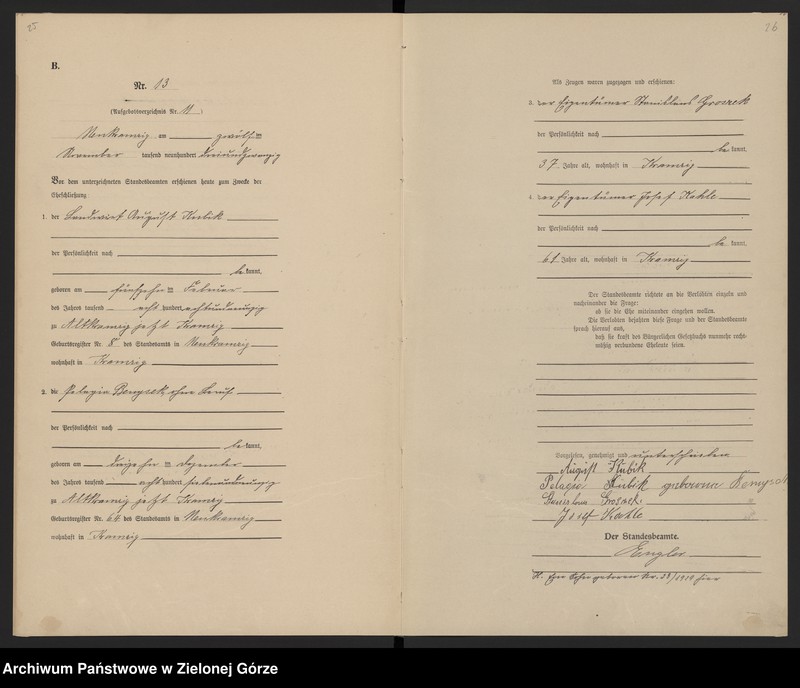 25
B.
Nr. 13
(Aufgebotsverzeichnis Nr. 11)
Neukramzig am zwölften
November tausend neunhundert dreiundzwanzig
Vor dem unterzeichneten Standesbeamten erschienen heute zum Zwecke der
Eheschließung:
1. der Landwirt August Kubik
der Persönlichkeit nach
bekannt,
geboren am fünfzehnten Februar
des Jahres tausend acht hundert
zu Altkramzig jetzt Kramzig
Geburtsregister Nr. 8 des Standesamts in Neukramzig
wohnhaft in Kramzig
2. die Pelagia ohne Beruf
der Persönlichkeit nach
bekannt,
geboren am Dezember
des Jahres tausend achthundert siebenundneunzig
zu Altkramzig jetzt Kramzig
Geburtsregister Nr. 64 des Standesamts in Neukramzig
wohnhaft in Kramzig
26
Als Zeugen waren zugezogen und erschienen:
3. der Eigentümer Stanislaus
der Persönlichkeit nach
bekannt,
37 Jahre alt, wohnhaft in Kramzig
4. der Eigentümer Josef Kahle
der Persönlichkeit nach
bekannt,
61 Jahre alt, wohnhaft in Kramzig
Der Standesbeamte richtete an die Verlobten einzeln und
nacheinander die Frage:
ob sie die Ehe miteinander eingehen wollen.
Die Verlobten bejahten diese Frage und der Standesbeamte
sprach hierauf aus,
daß sie kraft des Bürgerlichen Gesetzbuchs nunmehr recht-
mäßig verbundene Eheleute seien.
Vorgelesen, genehmigt und unterschrieben
August Kubik
Pelagia Kubik geborene
Josef Kahle
Der Standesbeamte.
Engler
geboren Nr. /1919 hier
Archiwum Państwowe w Zielonej Górze